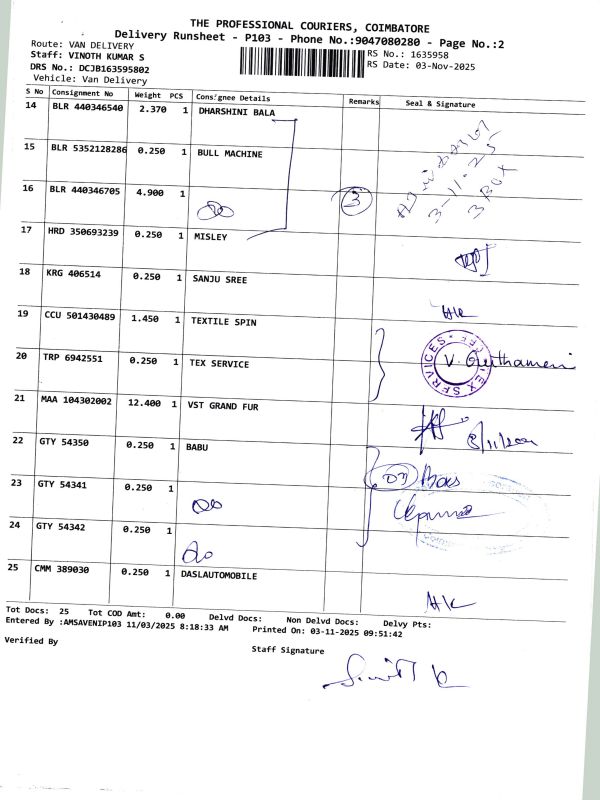 THE PROFESSIONAL COURIERS, COIMBATORE
Delivery Runsheet - P103 - Phone No.:9047080280 - Page No.:2
Route: VAN DELIVERY RS No.: 1635958
Staff: VINOTH KUMAR S RS Date: 03-Nov-2025
DRS No.: DCJB163595802
Vehicle: Van Delivery
S No Consignment No Weight PCS Consignee Details Remarks Seal & Signature
14 BLR 440346540 2.370 1 DHARSHINI BALA
15 BLR 5352128286 0.250 1 BULL MACHINE
3-11-25
16 BLR 440346705 4.900 1 3
3 BOX
17 HRD 350693239 0.250 1 MISLEY
18 KRG 406514 0.250 1 SANJU SREE
19 CCU 501430489 1.450 1 TEXTILE SPIN
20 TRP 6942551 0.250 1 TEX SERVICE
21 MAA 104302002 12.400 1 VST GRAND FUR
22 GTY 54350 0.250 1 BABU
23 GTY 54341 0.250 1
24 GTY 54342 0.250 1
25 CMM 389030 0.250 1 DASLAUTOMOBILE
Tot Docs: 25 Tot COD Amt: 0.00 Delvd Docs: Non Delvd Docs: Delvy Pts:
Entered By :AMSAVENIP103 11/03/2025 8:18:33 AM Printed On: 03-11-2025 09:51:42
Verified By Staff Signature